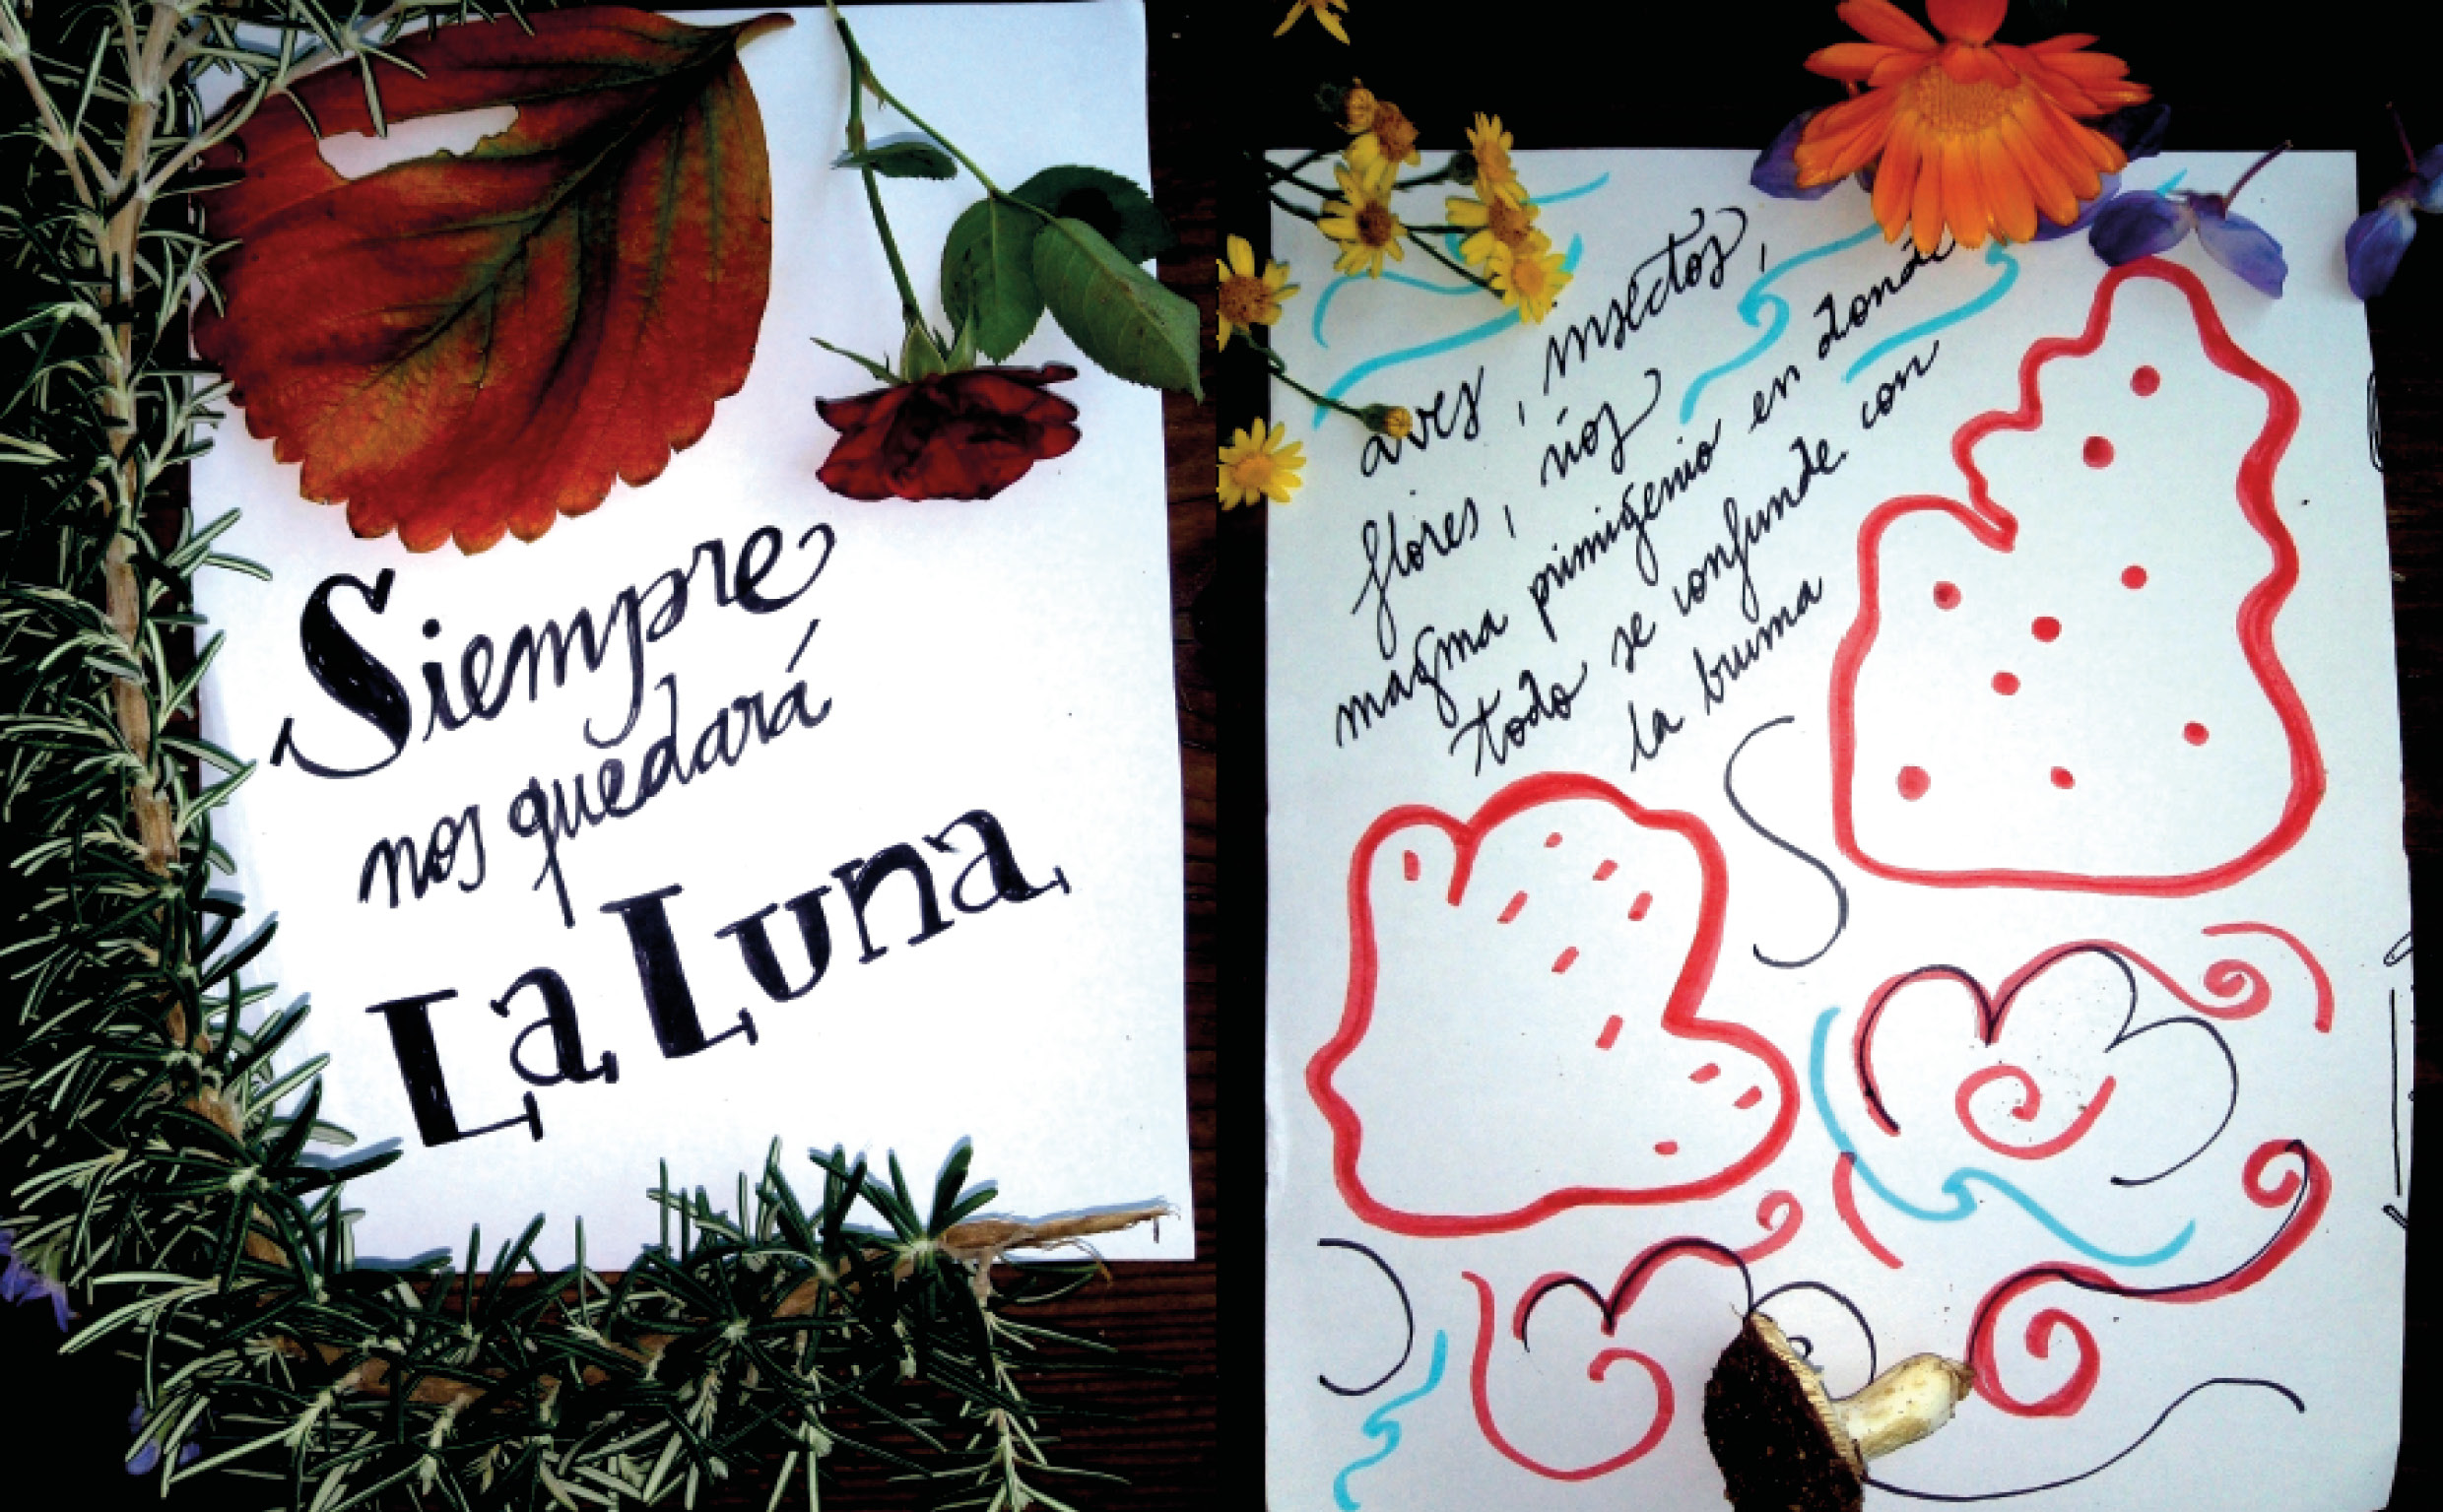 Siempre
nos quedará
La Luna
aves, insectos,
flores, ríos
magma primigenio en donde
todo se confunde con
la bruma